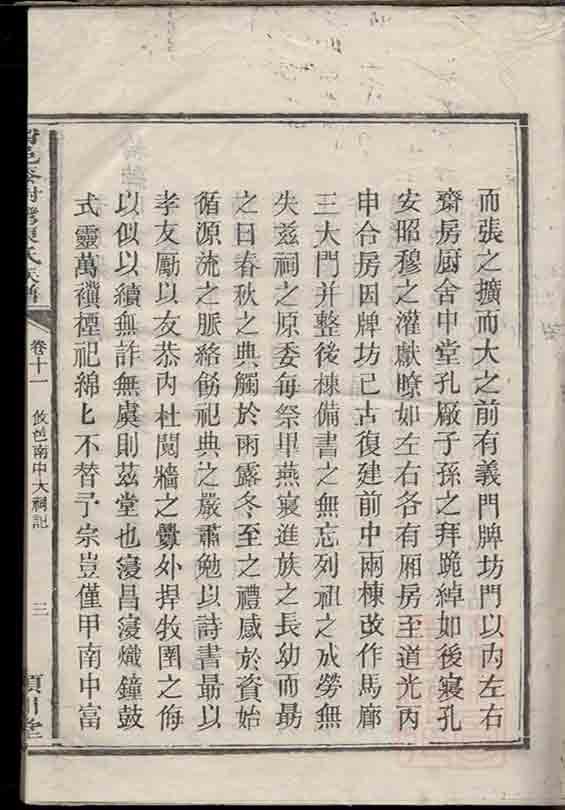 而張之擴而大之前有義門牌坊門以內左右
齋房厨舍中堂孔厰子孫之拜跪綽如後寢孔
安昭穆之灌獻暸如左右各有厢房至道光丙
申合房因牌坊已古復建前中兩棟改作馬廊
三大門并整後棟備書之無忘列祖之成勞無
失兹祠之原委每祭畢燕寢進族之長幼而勗
之曰春秋之典觸於雨露冬至之禮感於資始
循源流之脈絡餝祀典之嚴肅勉以詩書勗以
孝友勵以友恭內杜鬩牆之釁外捍牧圉之侮
以似以續無詐無虞則茲堂也寖昌寖熾鐘鼓
式靈萬禩禋祀綿匕不替予宗豈僅甲南中富
氏族譜
卷十一
攸邑南中大祠記
三
堂